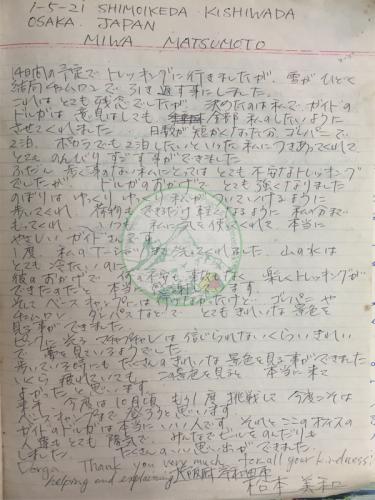 1-5-21 SHIMOIKEDA KISHIWADA
OSAKA. JAPAN
MIWA MATSUMOTO
14日間の予定でトレッキングに行きましたが、雪がひどく
結局チョムロンで引き返す事にしました。
これはとても残念でしたが、決めたのは私でガイドの
ドルガは意見はしても 全部私のしたいように
させてくれました 日数が短かくなった分、ゴレパニで
2泊、ポカラでも2泊したいといった私につきあってくれて
とてものんびりすごす事ができました
ふだん歩く事のない私にとってはとても不安なトレッキング
でしたが、ドルガのおかげで とても強くなりました
のぼりはゆっくりゆっくり私がついていけるように
歩いてくれ 荷物もできるだけ軽くなるように私の分まで
もってくれ、いつも私に気を使ってくれて本当に
やさしいガイドさんです。
1度、私の まで洗ってくれました。山の水は
とても冷たいのに
彼のおかげで 不安も事故もなく 楽しくトレッキングが
できたので 本当に感謝してます。
そしてベースキャンプには行けなかったけど、ゴレパニや
チョムロン、 などで とてもきれいな景色を
見る事ができました
マチャプチャレは信じられないくらいきれい
で 夢を見ているようでした
歩いている時にもたくさんのきれいな景色を見る事ができました
いくら疲れていても、この景色を見ると 本当に来て
よかったと思います
来年、今度は10月頃もう1度挑戦して 今度こそは
ベースキャンプまで登ろうと思います
ガイドのドルガは本当にいい人です それとこのオフィスの
人達もとても陽気で みんなでビールをのんだりも
しました たくさんのいい思い出ができました
Dorga. Thank you very much for all your kindness
helping and explaining 大阪府岸和田市
松本 美和